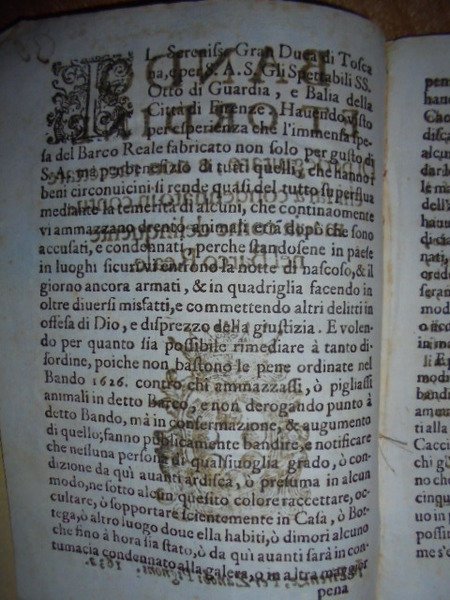 IL Sereniss. Gran Duca di Tosca
na, e per S. A. S. Gli Spettabili SS.
Otto di Guardia, e Balìa della
Città di Firenze, Hauendo visto
per esperienza che l'immensa spe
sa del Barco Reale fabricato non solo per gusto di
S. A. mà per benefizio di tutti quelli, che hanno i
beni circonuicini si rende quasi del tutto superflua
mediante la temerità di alcuni, che continaomente
vi ammazzano drento animali e sta dopò che sono
accusati, e condennati, perche standosene in paese
in luoghi sicuri v'entrono la notte di nascoso, & il
giorno ancora armati, & in quadriglia facendo in
oltre diuersi misfatti, e commettendo altri delitti in
offesa di Dio, e disprezzo della giustizia. E volen-
do per quanto sia possibile rimediare à tanto di-
sordine, poiche non bastono le pene ordinate nel
Bando 1626. contro chi ammazzassi, ò pigliassi
animali in detto Barco, e non derogando punto à
detto Bando, mà in confermazione, & augumento
di quello, fanno publicamente bandire, e notificare
che nessuna persona di qualsiuoglia grado, ò con-
dizione da quì auanti ardisca, ò presuma in alcun
modo, ne sotto alcun quesito colore raccettare, oc-
cultare, ò sopportare scientemente in Casa, ò Bot-
tega, ò altro luogo doue ella habiti, ò dimori alcuno
che fino à hora sia stato, ò da quì auanti sarà in con-
tumacia condennato alla galera, o in altra maggior
pena